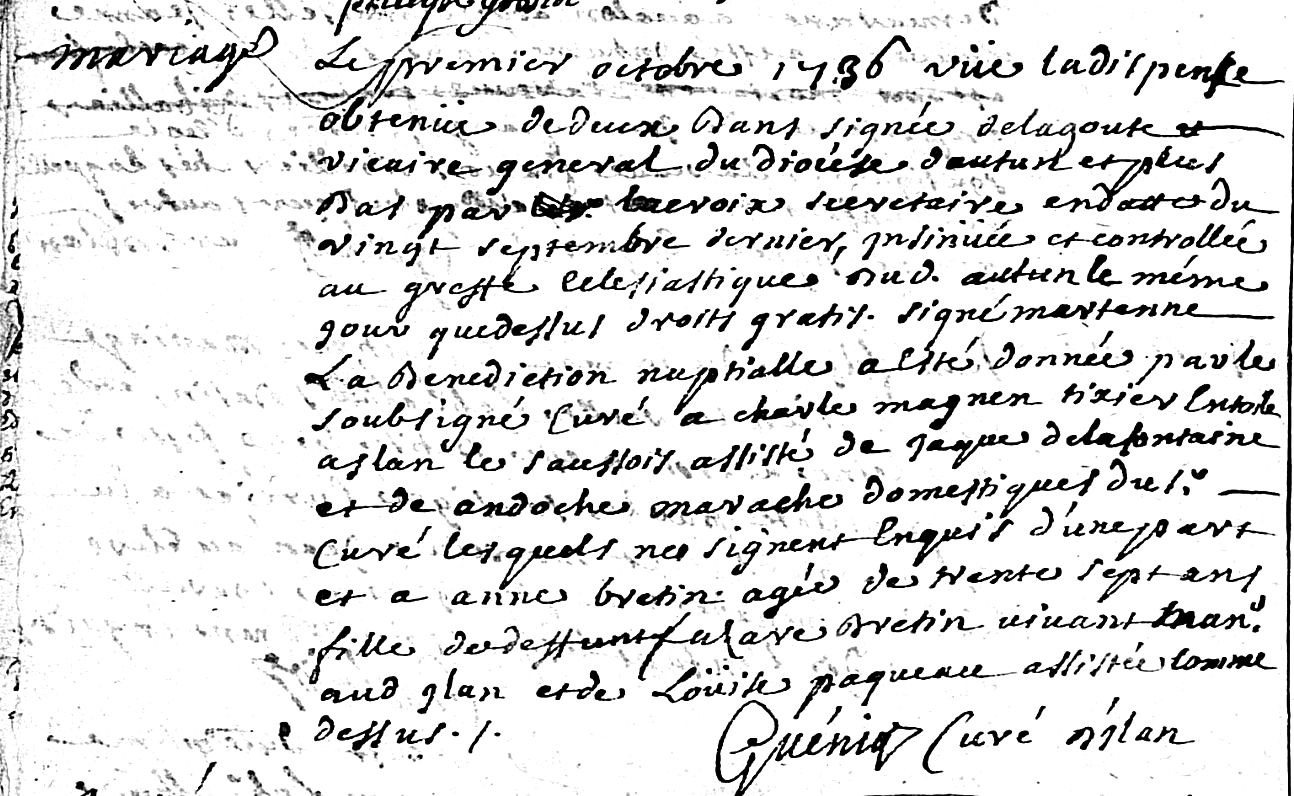 mariage
Le premier octobre 1736 vüe la dispense
obtenüe de deux Bans signée delagoute et
vicaire general du diocése dautun et plus
Bas par lacroix secretaire en datte du
vingt septembre dernier, insinüée et controllée
au greffe Eclesiastique Dud. autun le méme
jour que dessus droits gratis. signé martenne
La Benediction nuptialle a esté donnée par le
soubsigné Curé a charle magnen tixier En toile
a slan le saussois assisté de jaque delafontaine
et de andoche marache domestiques du sr.
Curé lesquels ne signent Enquis d'une part
et a anne bretin agée de trente sept ans
fille de deffunt Bretin vivant man.
aud glan et de Loüise paqueau assistée Comme
dessus ./.
Guéniq Curé